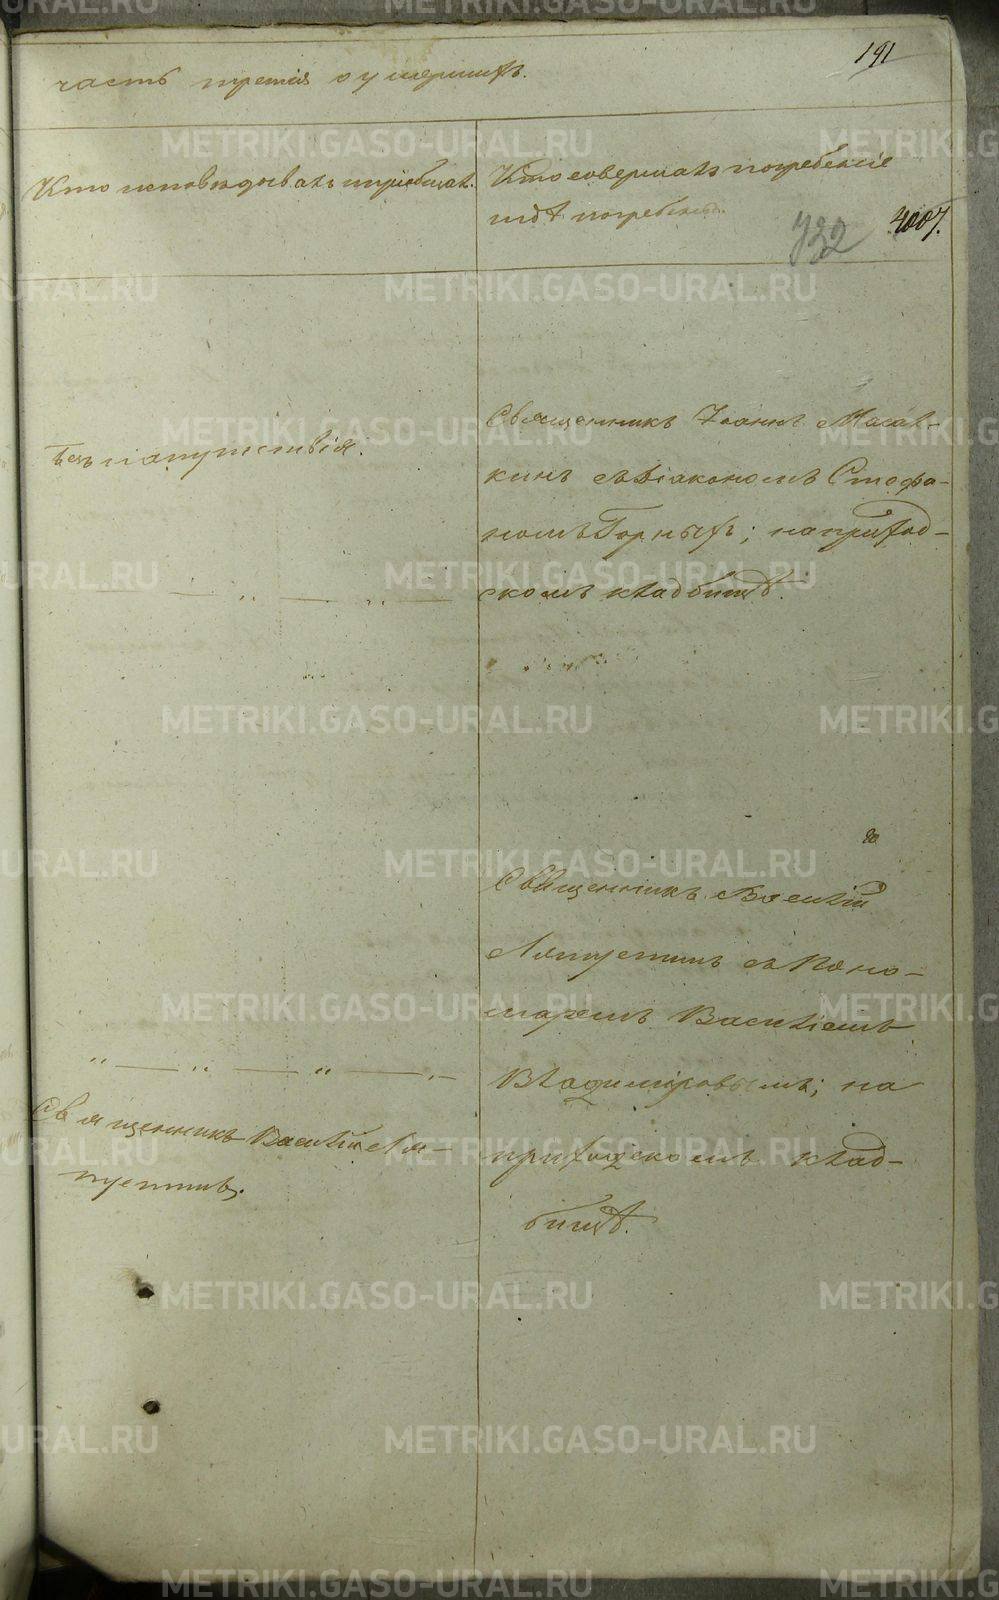 191
часть третія о умершихъ.
Кто исповѣдывалъ и пріобщалъ.
Кто совершалъ погребеніе
и гдѣ погребены.
732
4007.
Безъ напутствія.
Священникъ Іоаннъ Масал-
кинъ съ Діакономъ Стефа-
номъ Горныхъ; на приход-
скомъ кладбищѣ.
— „ — „ —
Священникъ Василій
Ляпустинъ съ Поно-
маремъ Василіемъ
Владиміровымъ; на
приходскомъ клад-
бищѣ.
„ — „ — „ — „ —
Священникъ Василій Ля-
пустинъ.
METRIKI.GASO-URAL.RU